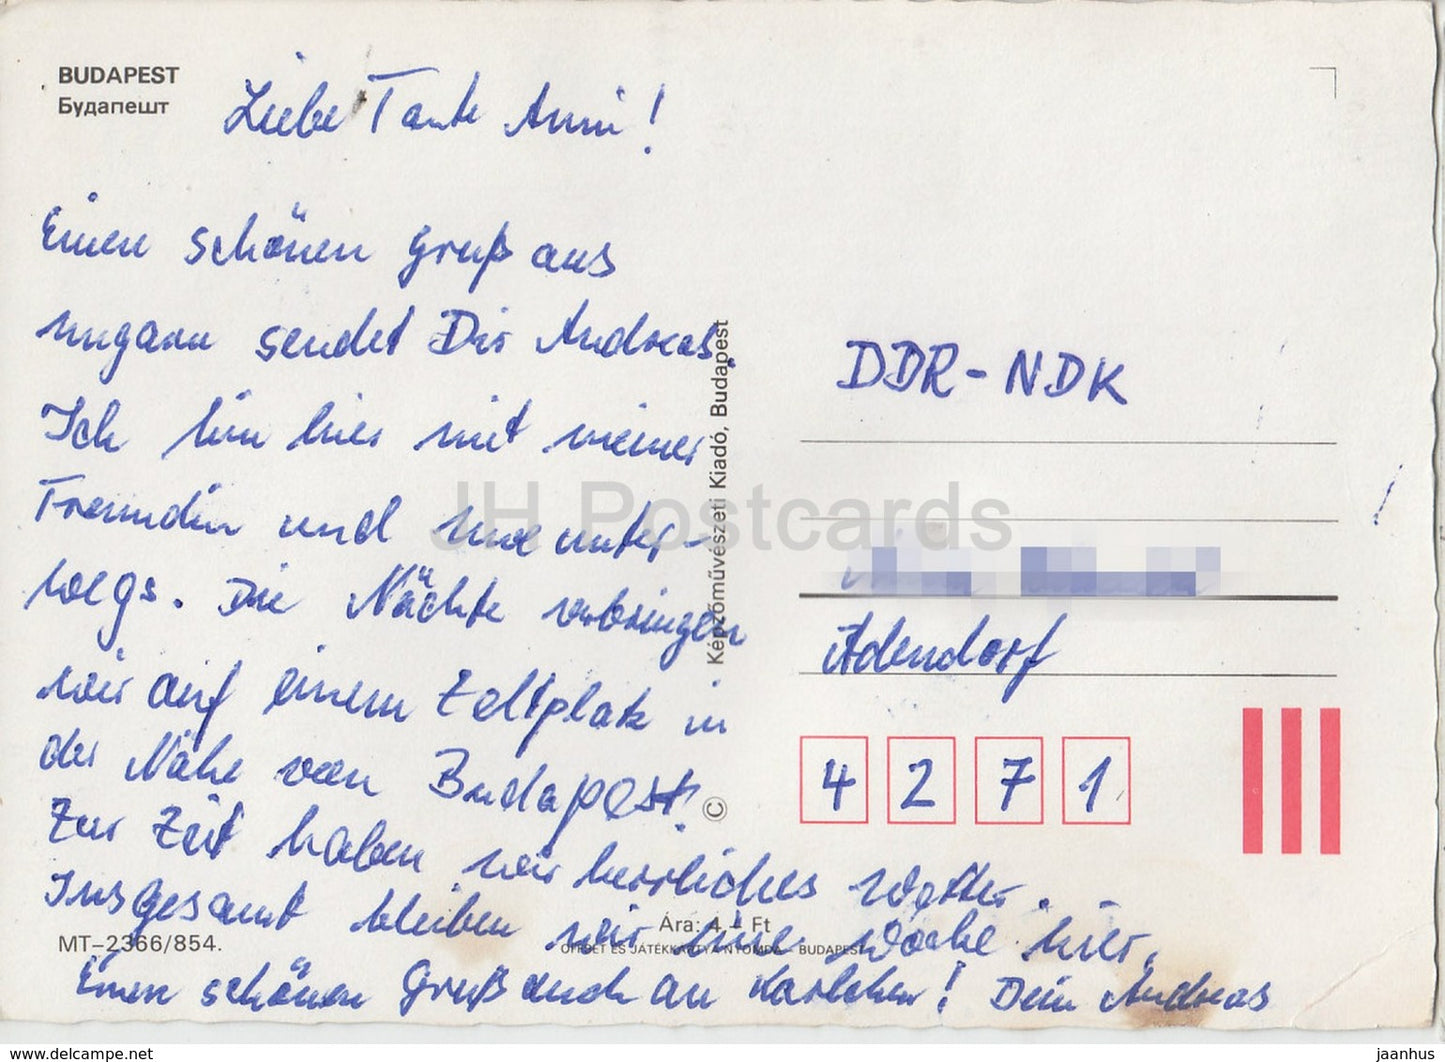 BUDAPEST
Будапешт
Liebe Tante Anni!
Einen schönen Gruß aus
Ungarn sendet Dir Andreas.
Ich bin hier mit meiner
Freundin und unter-
wegs. Die Nächte verbringen
wir auf einem Zeltplatz in
der Nähe von Budapest.
Zur Zeit haben wir herrliches Wetter.
Insgesamt bleiben wir eine Woche hier.
Einen schönen Gruß auch an Karlchen! Dein Andreas
Képzőművészeti Kiadó, Budapest
©
DDR-NDK
Adendorf
4 2 7 1
MT-2366/854.
Ára: 4,- Ft
OFFSET ÉS JÁTÉKKÁRTYA NYOMDA - BUDAPEST
JH Postcards
www.delcampe.net
jaanhus